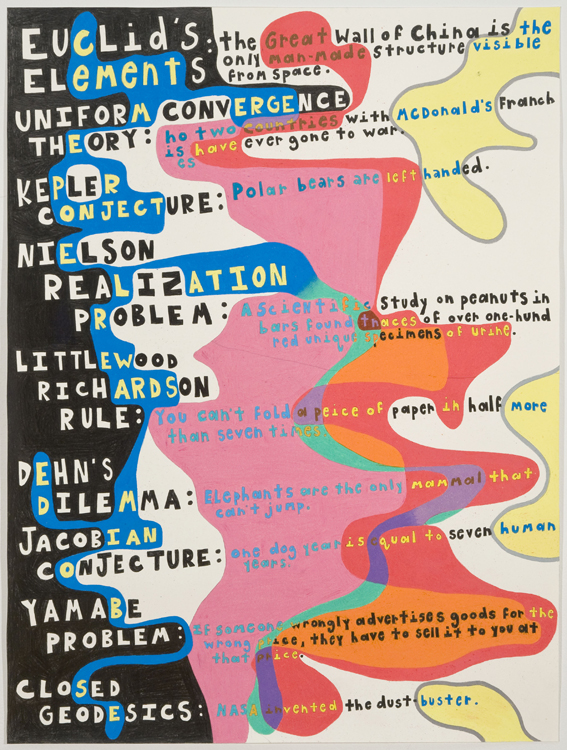 EUCLid'S:
ELEMENTS
the Great Wall of China is the
only man-made structure visible
from space.
UNIFORM CONVERGENCE
THEORY:
no two countries with McDonald's Franch
is have ever gone to war.
es
KEPLER
CONJECTURE:
Polar bears are left handed.
NIELSON
REALIZATION
PROBLEM:
A scientific study on peanuts in
bars found traces of over one-hund
red unique specimens of urine.
LITTLEWOOD
RICHARDSON
RULE:
You can't fold a peice of paper in half more
than seven times
DEHN'S
DILEMMA:
Elephants are the only mammal that
can't jump.
JACOBIAN
CONJECTURE:
one dog year is equal to seven human
years.
YAMABE
PROBLEM:
If someone wrongly advertises goods for the
wrong price, they have to sell it to you at
that price.
CLOSED
GEODESICS:
NASA invented the dust-buster.